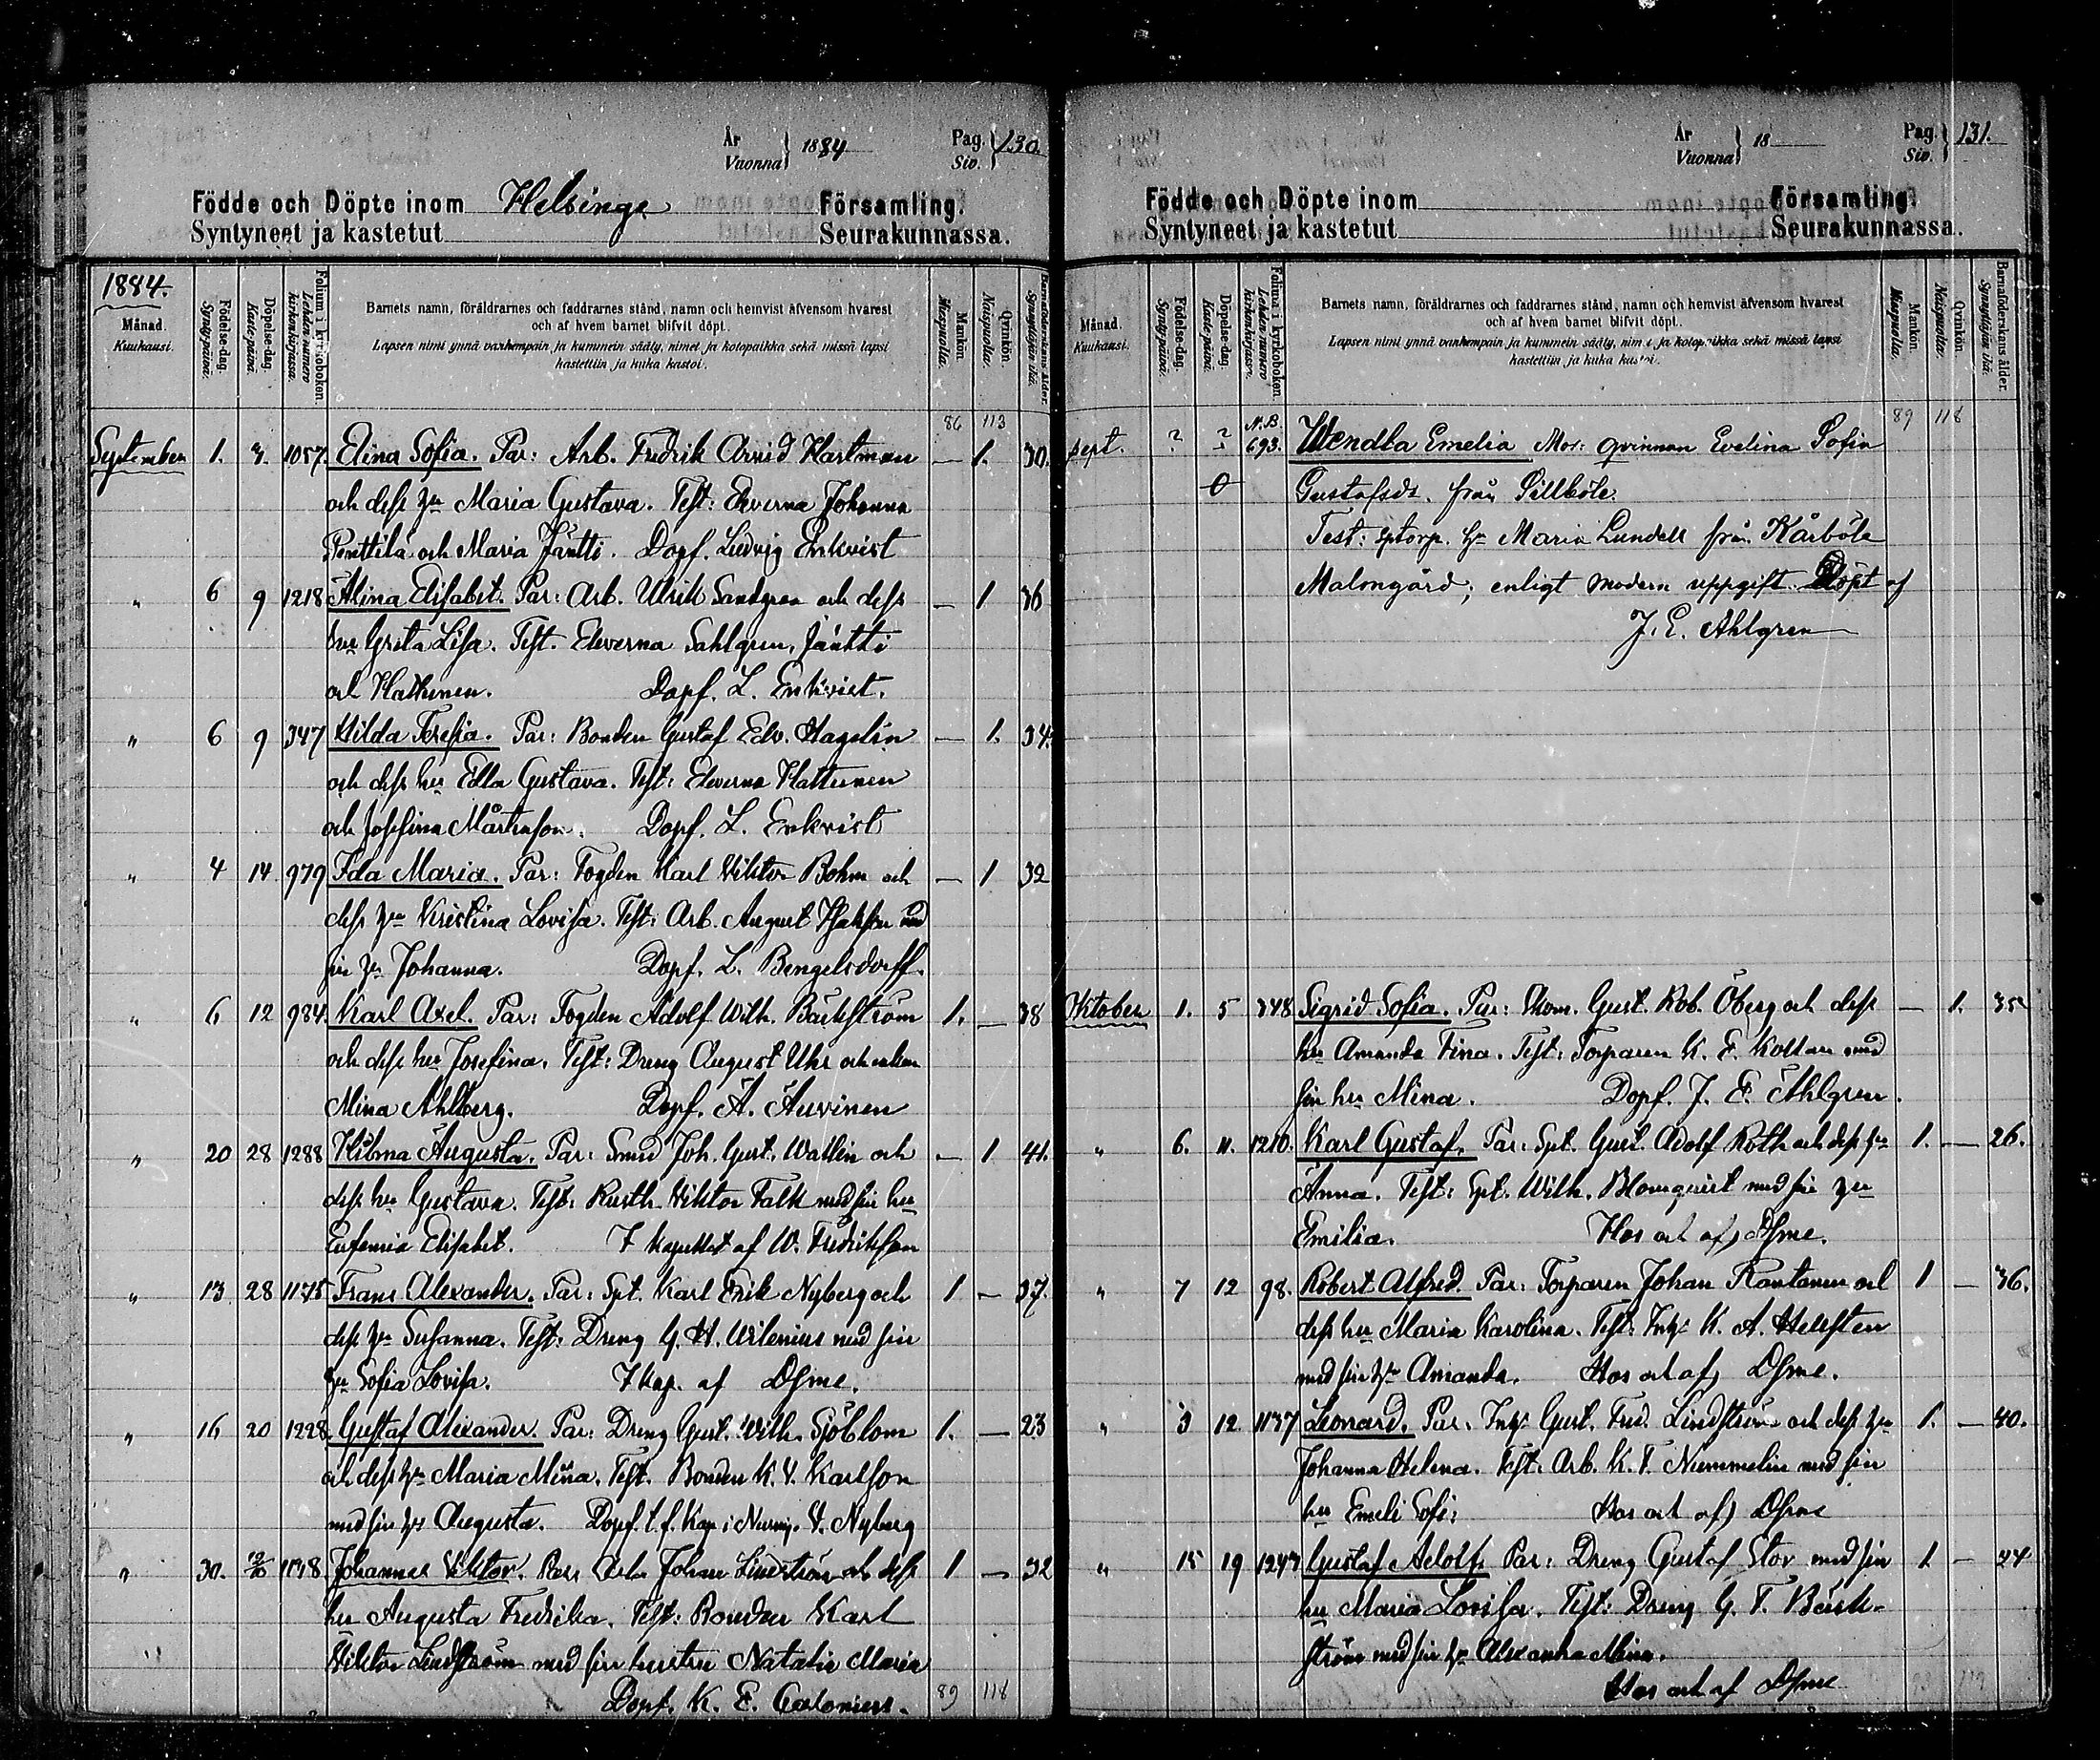 År
Vuonna } 1884
Pag.
Siv. } 130.
Födde och Döpte inom Helsinge Församling.
Syntyneet ja kastetut Seurakunnassa.
1884.
Månad.
Kuukausi.
Födelse-dag.
Syntypäivä.
Döpelse-dag.
Kastepäivä.
Folium i kyrkoboken.
Lehden numero kirkonkirjassa.
Barnets namn, föräldrarnes och faddrarnes stånd, namn och hemvist äfvensom hvarest
och af hvem barnet blifvit döpt.
Lapsen nimi ynnä vanhempain ja kummein sääty, nimet ja kotopaikka sekä missä lapsi
kastettiin ja kuka kastoi.
Mankön.
Miespuolia.
Qvinkön.
Naispuolia.
Barnaföderskans ålder.
Synnyttäjän ikä.
86 113
September 1. 3. 1057. Elina Sofia. Par: Arb. Fredrik Arvid Hartman — 1. 30.
och dess hu Maria Gustava. Test: Eleverna Johanna
Penttilä och Maria Jäntti. Dopf. Ludvig Enkvist
" 6 9 1218 Alina Elisabet. Par: Arb. Ulrik Sandgren och dess — 1 36
hu Greta Lisa. Test. Eleverna Sahlgren, Jäntti
och Hattunen. Dopf. L. Enkvist.
" 6 9 347 Hilda Teresia. Par: Bonden Gustaf Edv. Hagelin — 1. 34.
och dess hu Edla Gustava. Test: Eleverna Hattunen
och Josefina Mårtenson. Dopf. L. Enkvist
" 4 14 979 Ida Maria. Par: Fogden Karl Viktor Bohm och — 1 32
dess hu Kristina Lovisa. Test: Arb. August med
sin hu Johanna. Dopf. L. Bengelsdorff.
" 6 12 984. Karl Axel. Par: Fogden Adolf Wilh. Bäckström 1. — 38
och dess hu Josefina. Test: Dreng August Uhr och
Mina Ahlberg. Dopf. A. Auvinen
" 20 28 1288 Hilma Augusta. Par: Smed Joh. Gust. Wallin och — 1 41.
dess hu Gustava. Test: Rusth. Viktor Falk med sin hu
Eufemia Elisabet. I kapellet af W. Fredriksson
" 13 28 1175 Frans Alexander. Par: Spt. Karl Erik Nyberg och 1 — 37.
dess hu Susanna. Test: Dreng G. H. Wilenius med sin
hu Sofia Lovisa. I kap. af Dsme.
" 16 20 1228. Gustaf Alexander. Par: Dreng Gust. Wilh. Sjöblom 1. — 23
och dess hu Maria Mina. Test. Bonden K. V. Karlson
med sin hu Augusta. Dopf. t.f. Kap. i Nurmij. V. Nyberg
" 30. 12/10 1178 Johannes Viktor. Par: Arb. Johan Lindström och dess 1 — 32
hu Augusta Fredrika. Test: Bonden Karl
Viktor Lindström med sin hustru Natalia Maria
Dopf. K. E. Calonius.
89 118
År
Vuonna } 18
Pag.
Siv. } 131.
Födde och Döpte inom Församling.
Syntyneet ja kastetut Seurakunnassa.
Månad.
Kuukausi.
Födelse-dag.
Syntypäivä.
Döpelse-dag.
Kastepäivä.
Folium i kyrkoboken.
Lehden numero kirkonkirjassa.
Barnets namn, föräldrarnes och faddrarnes stånd, namn och hemvist äfvensom hvarest
och af hvem barnet blifvit döpt.
Lapsen nimi ynnä vanhempain ja kummein sääty, nimet ja kotopaikka sekä missä lapsi
kastettiin ja kuka kastoi.
Mankön.
Miespuolia.
Qvinkön.
Naispuolia.
Barnaföderskans ålder.
Synnyttäjän ikä.
89 118
N.B.
sept. ? ? 693. Wendla Emelia Mor: qvinnan Evelina Sofia
Gustafsdr. från Sillböle.
Test: sptorp. hu Maria Lundell från Kårböle
Malmgård; enligt modern uppgift. Döpt af
J. E. Ahlgren
Oktober 1. 5 348 Sigrid Sofia. Par: Skom. Gust. Rob. Öberg och dess — 1. 35
hu Amanda Fina. Test: Torparen K. F. med
sin hu Mina. Dopf. J. E. Ahlgren.
" 6. 11. 1210. Karl Gustaf. Par: Spt. Gust. Adolf Roth och dess hu 1. — 26.
Anna. Test: Spt. Wilh. Blomqvist med sin hu
Emilia. Hos och af Dsme.
" 7 12 98. Robert Alfred. Par: Torparen Johan Rantanen och 1 — 36.
dess hu Maria Karolina. Test: Inh. K. A. Hellsten
med sin hu Amanda. Hos och af Dsme.
" 3 12 1137 Leonard. Par. Inh. Gust. Fred. Lindström och dess hu 1. — 40.
Johanna Helena. Test: Arb. K. F. Nummelin med sin
hu Emeli Sofi: Hos och af Dsme
" 15 19 1247 Gustaf Adolf. Par: Dreng Gustaf Stor med sin 1 — 24
hu Maria Lovisa. Test: Dreng G. F. Bäck-
ström med sin hu Alexandra Mina.
Hos och af Dsme